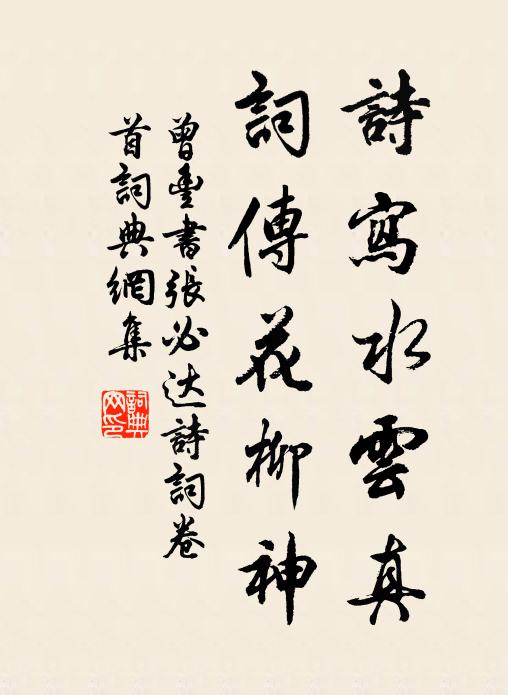 詩寫水雲真
詞傳花柳神
曾豐書張必达詩詞卷
首詞典網集
詞典网印